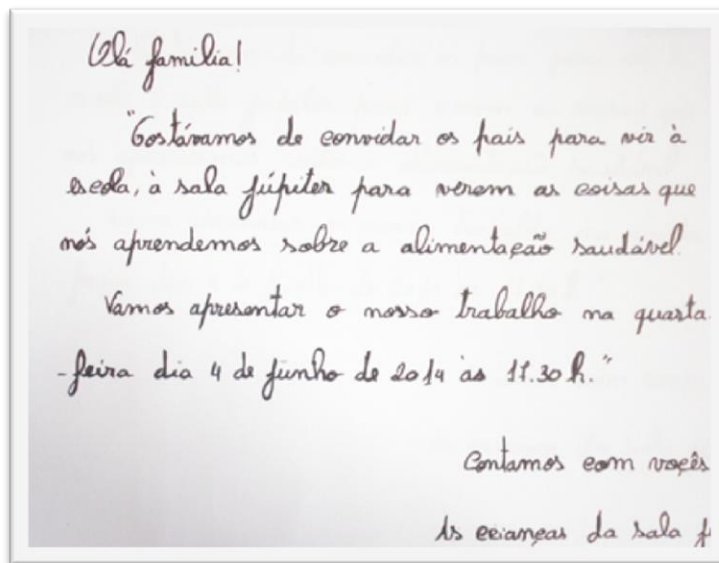 Olá família!
"Gostávamos de convidar os pais para vir à
escola, à sala Júpiter para verem as coisas que
nós aprendemos sobre a alimentação saudável.
Vamos apresentar o nosso trabalho na quarta-
-feira dia 4 de junho de 2014 às 17.30 h."
Contamos com vocês
As crianças da sala